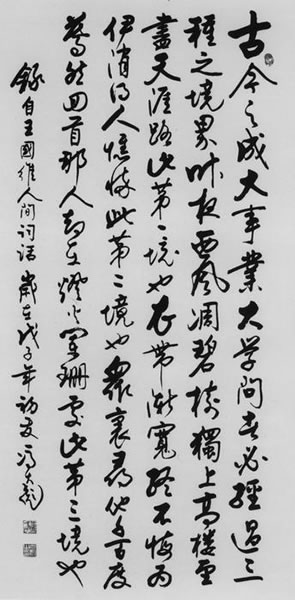 古今之成大事業大学問者必經過三
種之境界昨夜西風凋碧樹獨上高楼望
盡天涯路此第一境也衣帶漸寬終不悔为
伊消得人憔悴此第二境也衆裏尋他千百度
驀然回首那人却在燈火闌珊處此第三境也
録自王國維人间词话歲在戊子年初夏冯